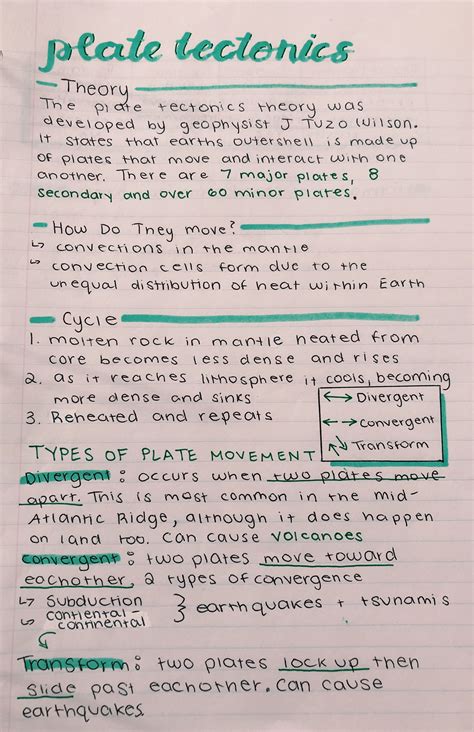 plate tectonics
Theory
The plate tectonics theory was
developed by geophysist J Tuzo Wilson.
It states that earths outershell is made up
of plates that move and interact with one
another. There are 7 major plates, 8
secondary and over 60 minor plates.
How Do They move?
↳ convections in the mantle
↳ convection cells form due to the
unequal distribution of heat within Earth
Cycle
1. molten rock in mantle heated from
core becomes less dense and rises
2. as it reaches lithosphere it cools, becoming
more dense and sinks
3. Reheated and repeats
←→ Divergent
←→ convergent
Transform
TYPES OF PLATE MOVEMENT
Divergent: occurs when two plates move
apart. This is most common in the mid-
Atlantic Ridge, although it does happen
on land too. Can cause volcanoes
convergent: two plates move toward
eachother, 2 types of convergence
↳ Subduction
↳ contiental-
continental
} earthquakes + tsunamis
Transform: two plates lock up then
slide past eachother. Can cause
earthquakes.